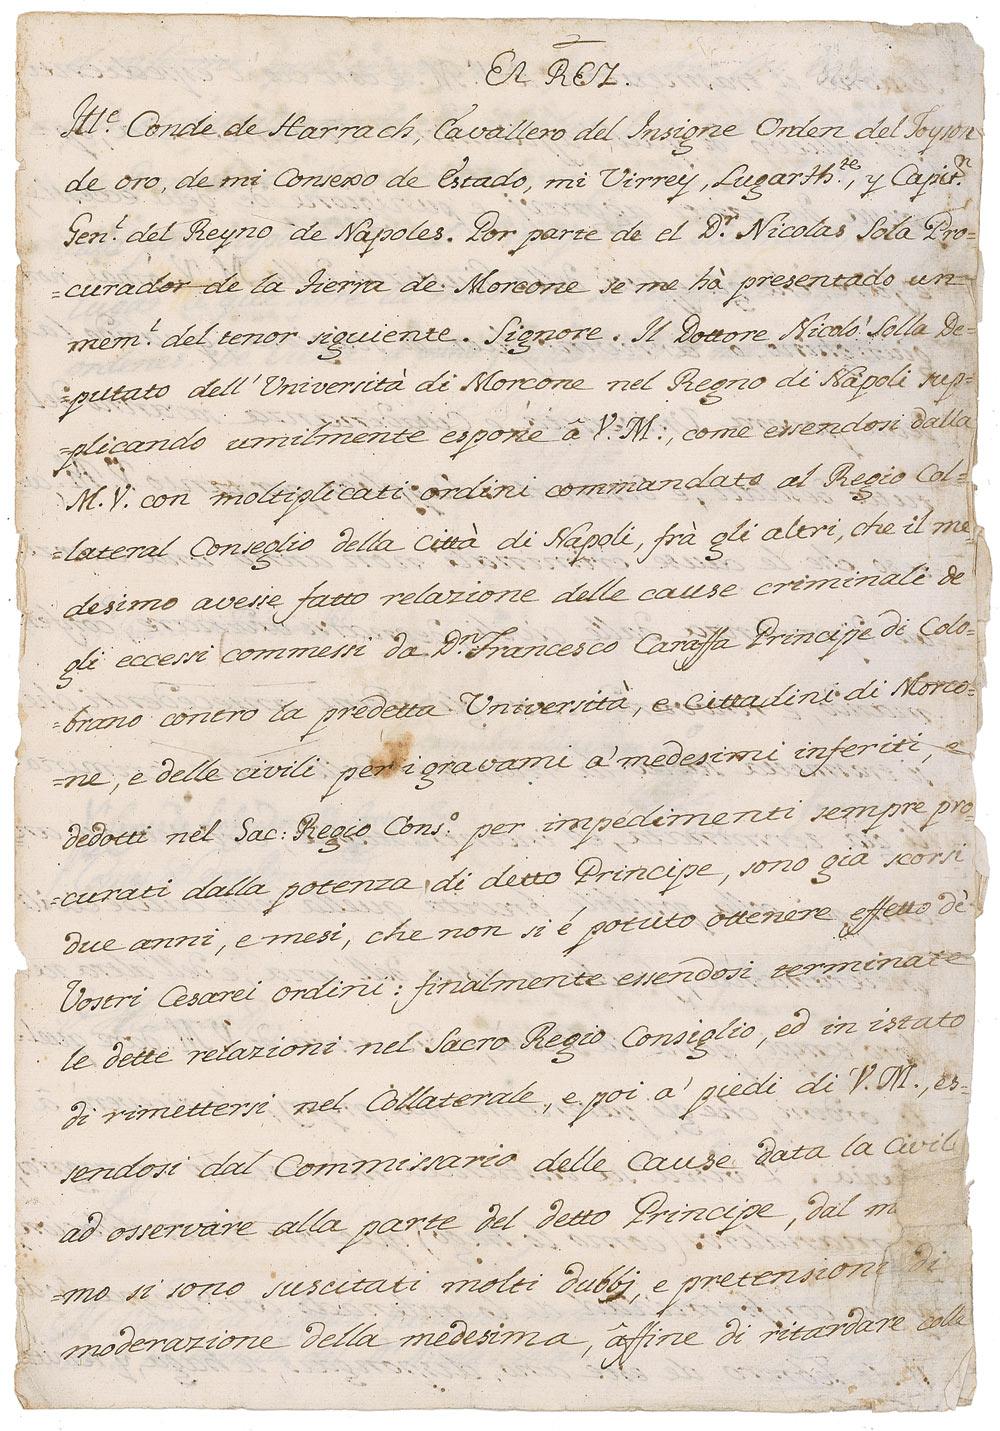 El REY.
Ill.e Conde de Harrach, Cavallero del Insigne Orden del Toyson
de oro, de mi Consexo de Estado, mi Virrey, Lugarth.te, y Capit.n
Gen.l del Reyno de Napoles. Por parte de el D.r Nicolas Sola Pro=
=curador de la Tierra de Morcone se me hà presentado un
mem.l del tenor siguiente. Signore. Il Dottore Nicolò Solla De=
=putato dell'Università di Morcone nel Regno di Napoli sup=
=plicando umilmente espone â V.M:, come essendosi dalla
M.V. con moltiplicati ordini commandato al Regio Col=
=lateral Conseglio della Città di Napoli, frà gli altri, che il me=
desimo avesse fatto relazione delle cause criminali de
gli eccessi commessi da D.n Francesco Caraffa Principe di Colo=
=brano contro la predetta Università, e Cittadini di Morco=
=ne, e delle civili per i gravami a' medesimi inferiti, e
dedotti nel Sac: Regio Cons.o per impedimenti sempre pro=
=curati dalla potenza di detto Principe, sono già scorsi
due anni, e mesi, che non si é potuto ottenere effetto dè
Vostri Cesarei ordini: finalmente essendosi terminate
le dette relazioni nel Sacro Regio Consiglio, ed in istato
di rimettersi nel Collaterale, e poi a' piedi di V.M., es=
sendosi dal Commissario delle Cause data la Civil
ad osservare alla parte del detto Principe, dal m
=mo si sono suscitati molti dubbj, e pretensioni di
moderazione della medesima, âffine di ritardare colla